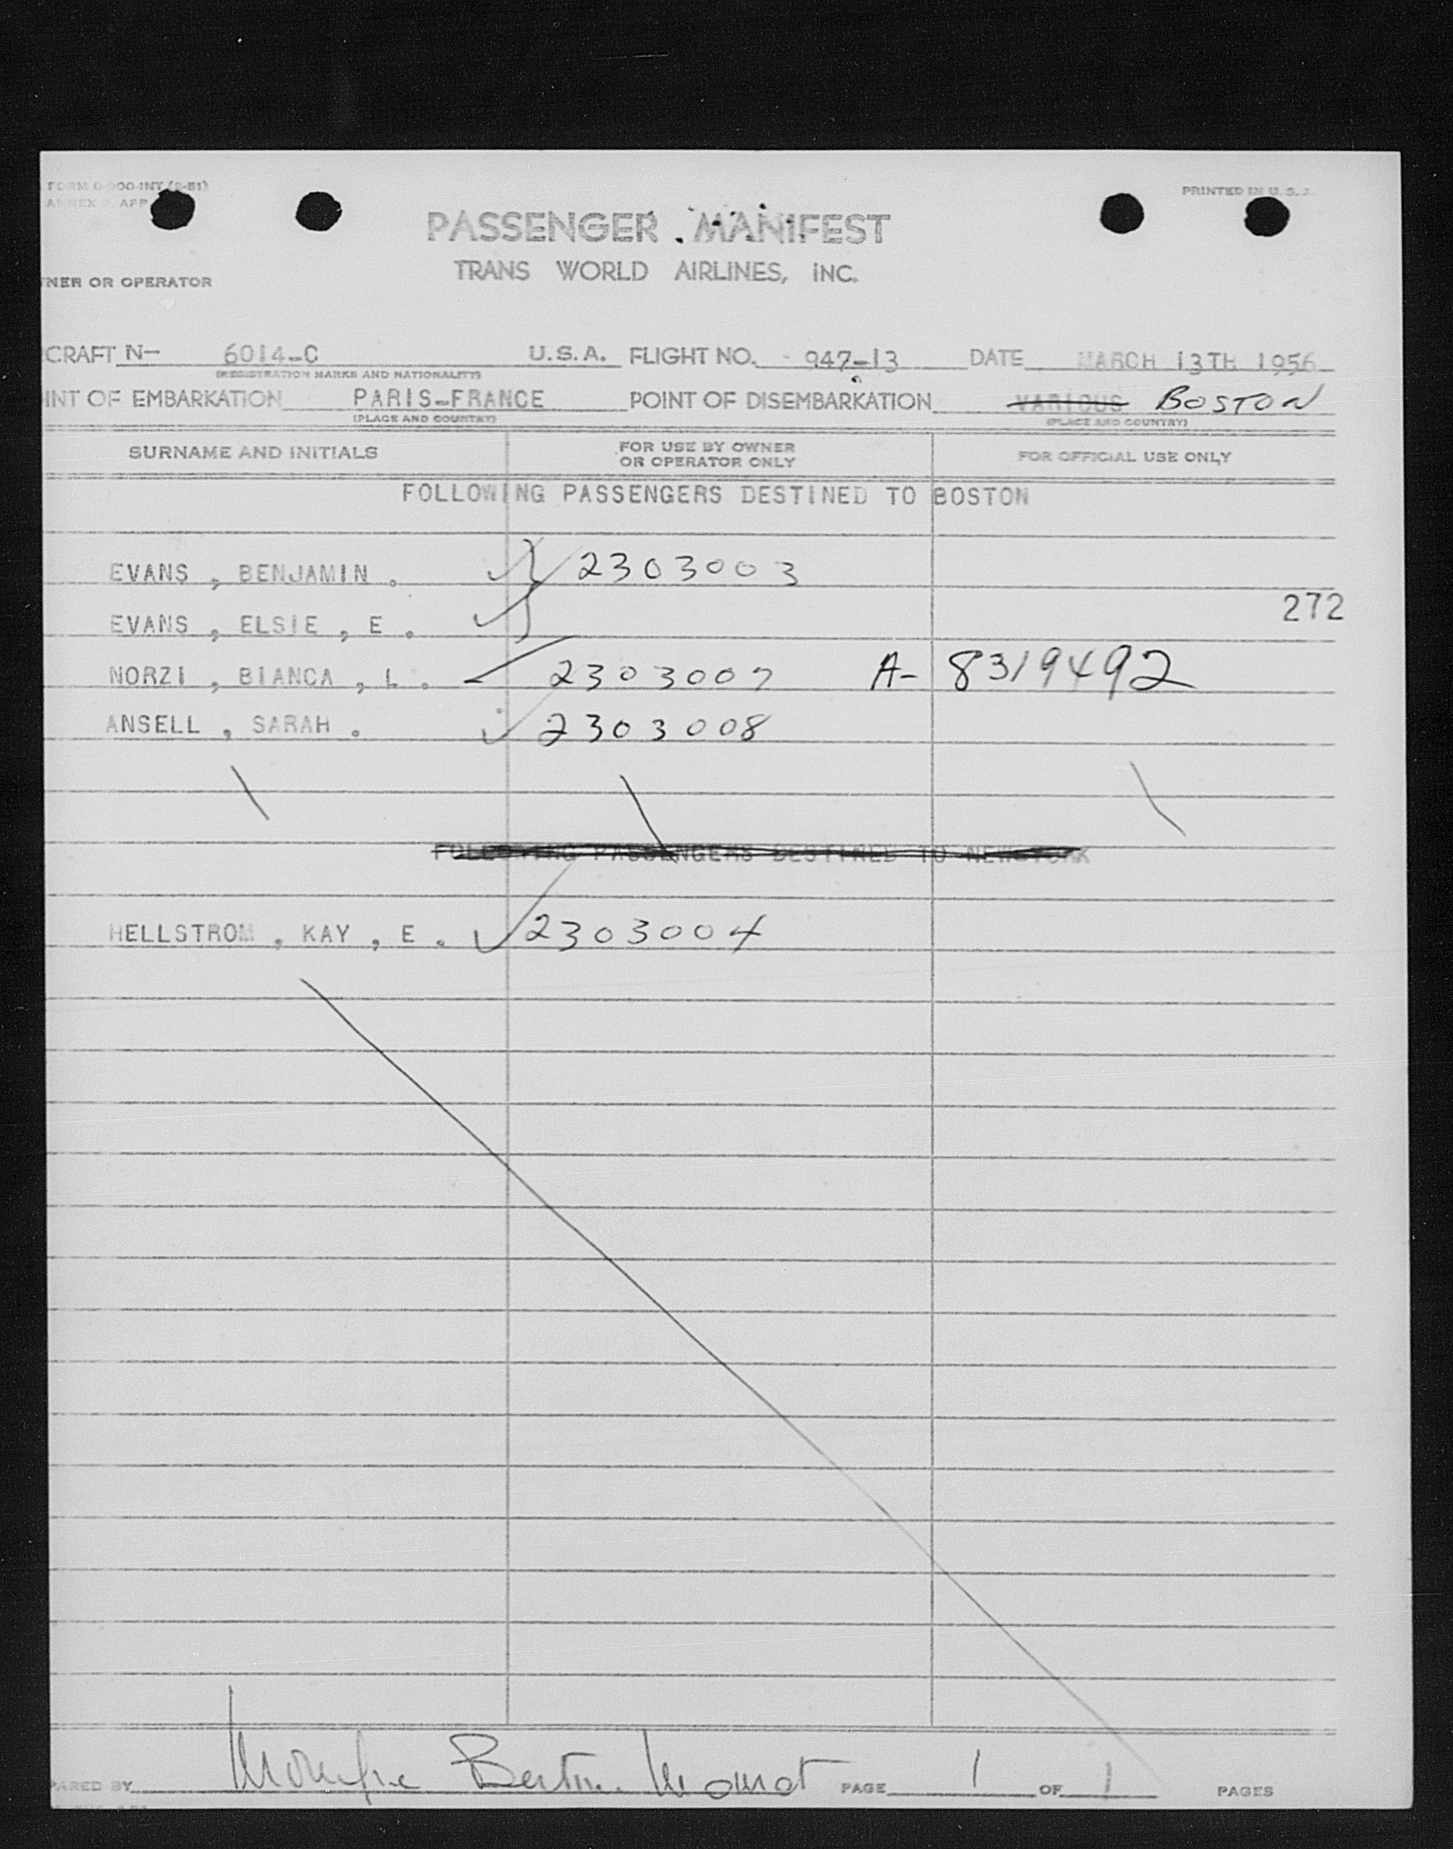 FORM O-900-INT (2-51)
ANNEX 2, APP
PRINTED IN U. S. A.
PASSENGER MANIFEST
TRANS WORLD AIRLINES, INC.
NER OR OPERATOR
CRAFT N- 6014-C U.S.A. FLIGHT NO. 947-13 DATE MARCH 13TH 1956
(REGISTRATION MARKS AND NATIONALITY)
INT OF EMBARKATION PARIS-FRANCE POINT OF DISEMBARKATION VARIOUS BOSTON
(PLACE AND COUNTRY) (PLACE AND COUNTRY)
SURNAME AND INITIALS FOR USE BY OWNER OR OPERATOR ONLY FOR OFFICIAL USE ONLY
FOLLOWING PASSENGERS DESTINED TO BOSTON
EVANS , BENJAMIN . 2303003
272
EVANS , ELSIE , E .
NORZI , BIANCA , L . 2303007 A- 8319492
ANSELL , SARAH . 2303008
FOLLOWING PASSENGERS DESTINED TO NEW-YORK
HELLSTROM , KAY , E . 2303004
ARED BY PAGE 1 OF 1 PAGES